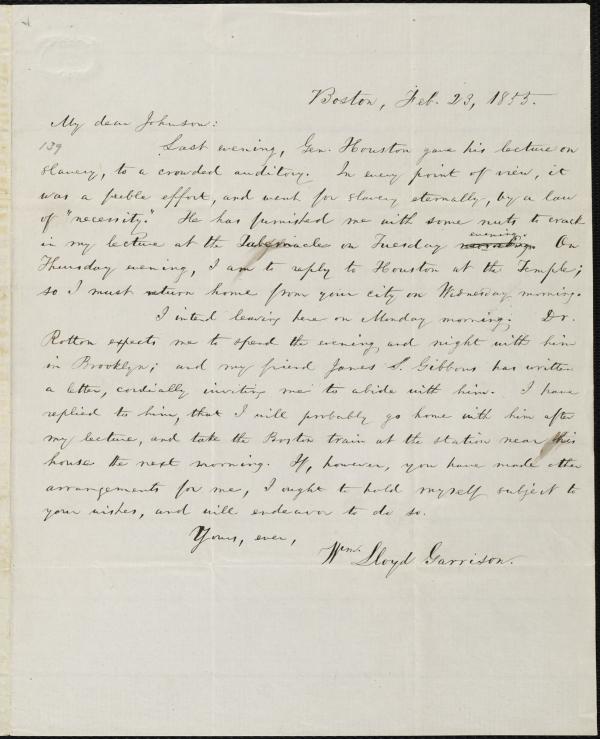 Boston, Feb. 23, 1855.
My dear Johnson:
139 Last evening, Gen. Houston gave his lecture on
slavery, to a crowded auditory. In every point of view, it
was a feeble effort, and went for slavery eternally, by a law
of "necessity." He has furnished me with some nuts to crack
evening.
in my lecture at the Tabernacle on Tuesday On
Thursday evening, I am to reply to Houston at the Temple;
so I must return home from your city on Wednesday morning.
I intend leaving here on Monday morning. Dr.
Rotton expects me to spend the evening and night with him
in Brooklyn; and my friend James S. Gibbons has written
a letter, cordially inviting me to abide with him. I have
replied to him, that I will probably go home with him after
my lecture, and take the Boston train at the station near his
house the next morning. If, however, you have made other
arrangements for me, I ought to hold myself subject to
your wishes, and will endeavor to do so.
Yours, ever,
Wm. Lloyd Garrison.